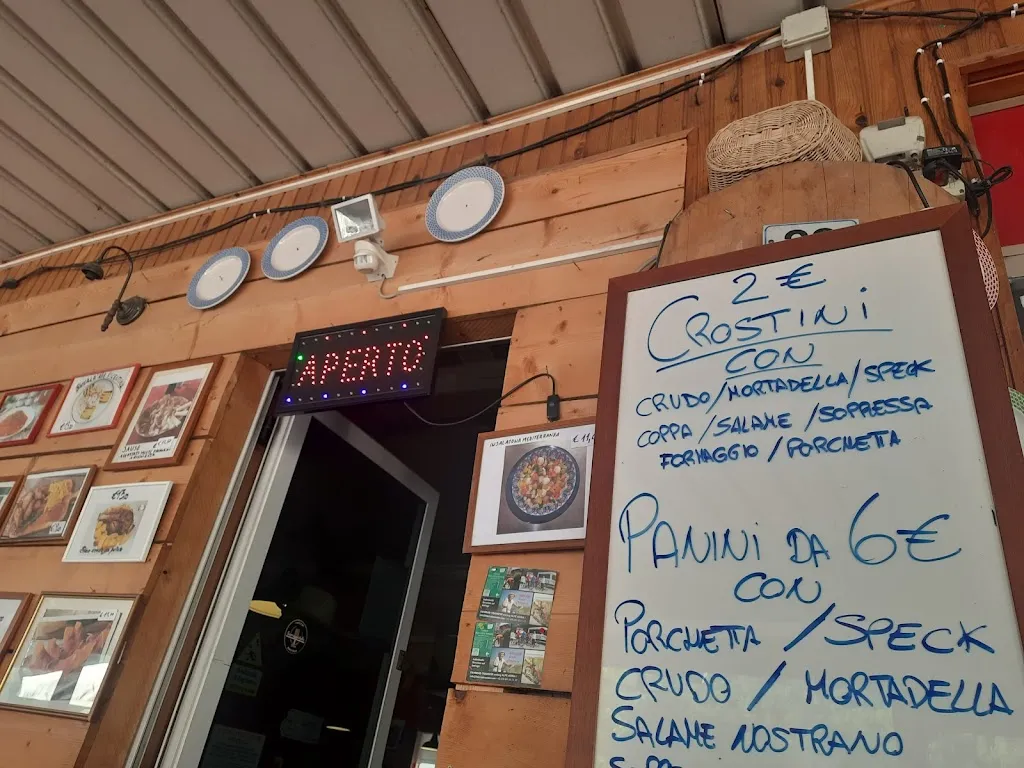 APERTO
INSALATONA MEDITERRANEA
2 €
CROSTINI
CON
CRUDO/MORTADELLA/SPECK
COPPA/SALAME/SOPRESSA
FORMAGGIO/PORCHETTA
PANINI DA 6€
CON
PORCHETTA/SPECK
CRUDO/MORTADELLA
SALAME NOSTRANO